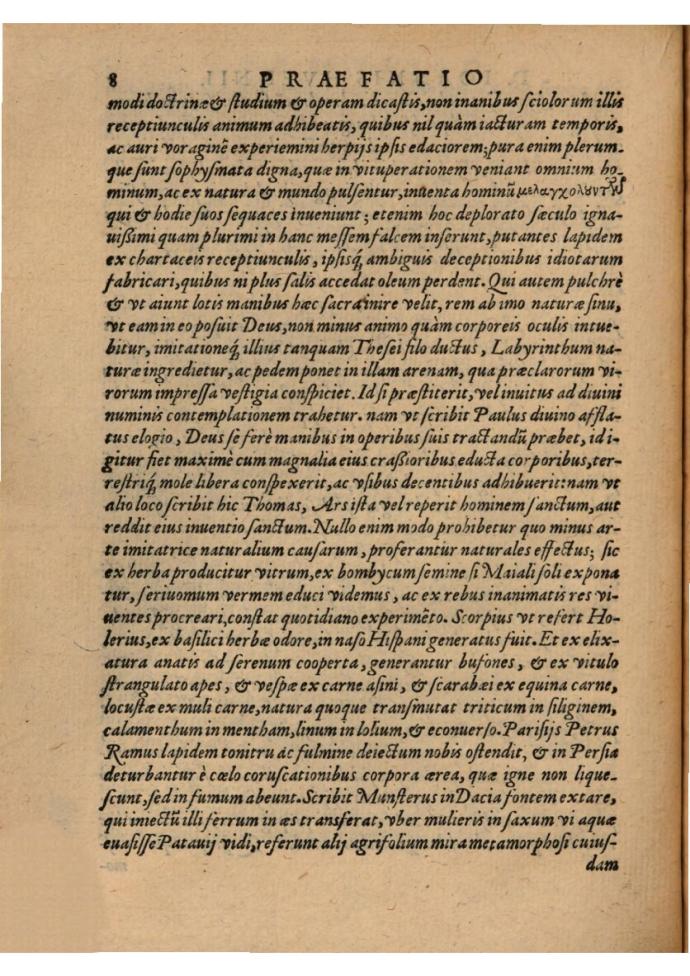 8 PRAEFATIO
modi doctrinæ & studium & operam dicastis, non inanibus sciolorum illis
receptiunculis animum adhibeatis, quibus nil quàm iacturam temporis,
ac auri voraginẽ experiemini herpijs ipsis edaciorem; pura enim plerum-
que sunt sophysmata digna, quæ in vituperationem veniant omnium ho-
minum, ac ex natura & mundo pulsentur, inuenta hominũ μελαγχολούντων
qui & hodie suos sequaces inueniunt; etenim hoc deplorato sæculo igna-
uißimi quam plurimi in hanc messem falcem inserunt, putantes lapidem
ex chartaceis receptiunculis, ipsisq́; ambiguis deceptionibus idiotarum
fabricari, quibus ni plus salis accedat oleum perdent. Qui autem pulchrè
& vt aiunt lotis manibus hæc sacra inire velit, rem ab imo naturæ sinu,
vt eam in eo posuit Deus, non minus animo quàm corporeis oculis intue-
bitur, imitationeq́; illius tanquam Thesei filo ductus, Labyrinthum na-
turæ ingredietur, ac pedem ponet in illam arenam, qua præclarorum vi-
rorum impressa vestigia conspiciet. Id si præstiterit, vel inuitus ad diuini
numinis contemplationem trahetur. nam vt scribit Paulus diuino affla-
tus elogio, Deus se ferè manibus in operibus suis tractandũ præbet, id i-
gitur fiet maximè cum magnalia eius craßioribus educta corporibus, ter-
restriq́; mole libera conspexerit, ac vsibus decentibus adhibuerit: nam vt
alio loco scribit hic Thomas, Ars ista vel reperit hominem sanctum, aut
reddit eius inuentio sanctum. Nullo enim modo prohibetur quo minus ar-
te imitatrice naturalium causarum, proferantur naturales effectus; sic
ex herba producitur vitrum, ex bombycum semine si Maiali soli expona
tur, seriuomum vermem educi videmus, ac ex rebus inanimatis res vi-
uentes procreari, constat quotidiano experimẽto. Scorpius vt refert Ho-
lerius, ex basilici herbæ odore, in naso Hispani generatus fuit. Et ex elix-
atura anatis ad serenum cooperta, generantur bufones, & ex vitulo
strangulato apes, & vespæ ex carne asini, & scarabæi ex equina carne,
locustæ ex muli carne, natura quoque transmutat triticum in siliginem,
calamenthum in mentham, linum in lolium, & econuerso. Parisijs Petrus
Ramus lapidem tonitru ac fulmine deiectum nobis ostendit, & in Persia
deturbantur è cœlo coruscationibus corpora ærea, quæ igne non lique-
scunt, sed in fumum abeunt. Scribit Munsterus in Dacia fontem extare,
qui iniectũ illi ferrum in æs transferat, vber mulieris in saxum vi aquæ
euasisse Patauij vidi, referunt alij agrifolium mira metamorphosi cuius-
dam